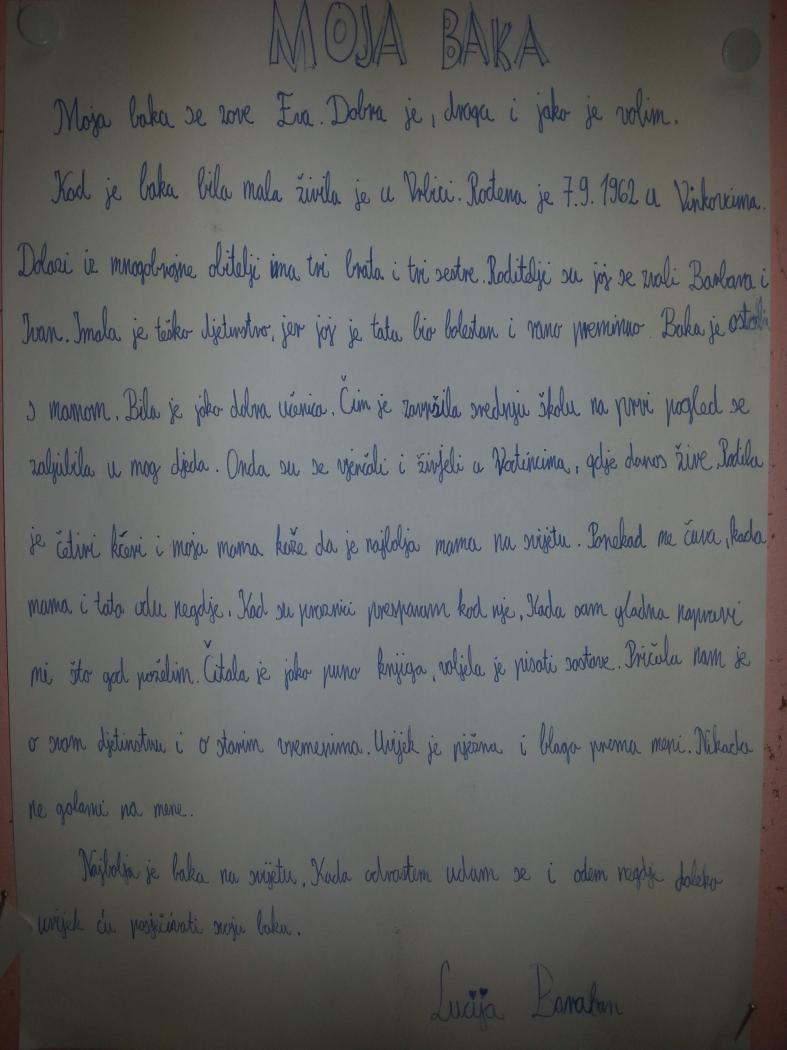 MOJA BAKA
Moja baka se zove Eva. Dobra je, draga i jako je volim.
Kad je baka bila mala živila je u Vrbici. Rođena je 7.9.1962 u Vinkovcima.
Dolazi iz mnogobrojne obitelji ima tri brata i tri sestre. Roditelji su joj se zvali Barbara i
Ivan. Imala je teško djetinstvo, jer joj je tata bio bolestan i rano preminuo. Baka je ostala
s mamom. Bila je jako dobra učenica. Čim je završila srednju školu na prvi pogled se
zaljubila u mog djeda. Onda su se vjenčali i živjeli u Vođincima, gdje danas žive. Rodila
je četiri kćeri i moja mama kaže da je najbolja mama na svijetu. Ponekad me čuva, kada
mama i tata odu negdje. Kad su praznici prespavam kod nje. Kada sam gladna napravi
mi što god poželim. Čitala je jako puno knjiga, voljela je pisati sastave. Pričala nam je
o svom djetinstvu i o starim vremenima. Uvijek je nježna i blaga prema meni. Nikada
ne galami na mene.
Najbolja je baka na svijetu. Kada odrastem udam se i odem negdje daleko
uvijek ću posjećivati svoju baku.
Lucija Baraban